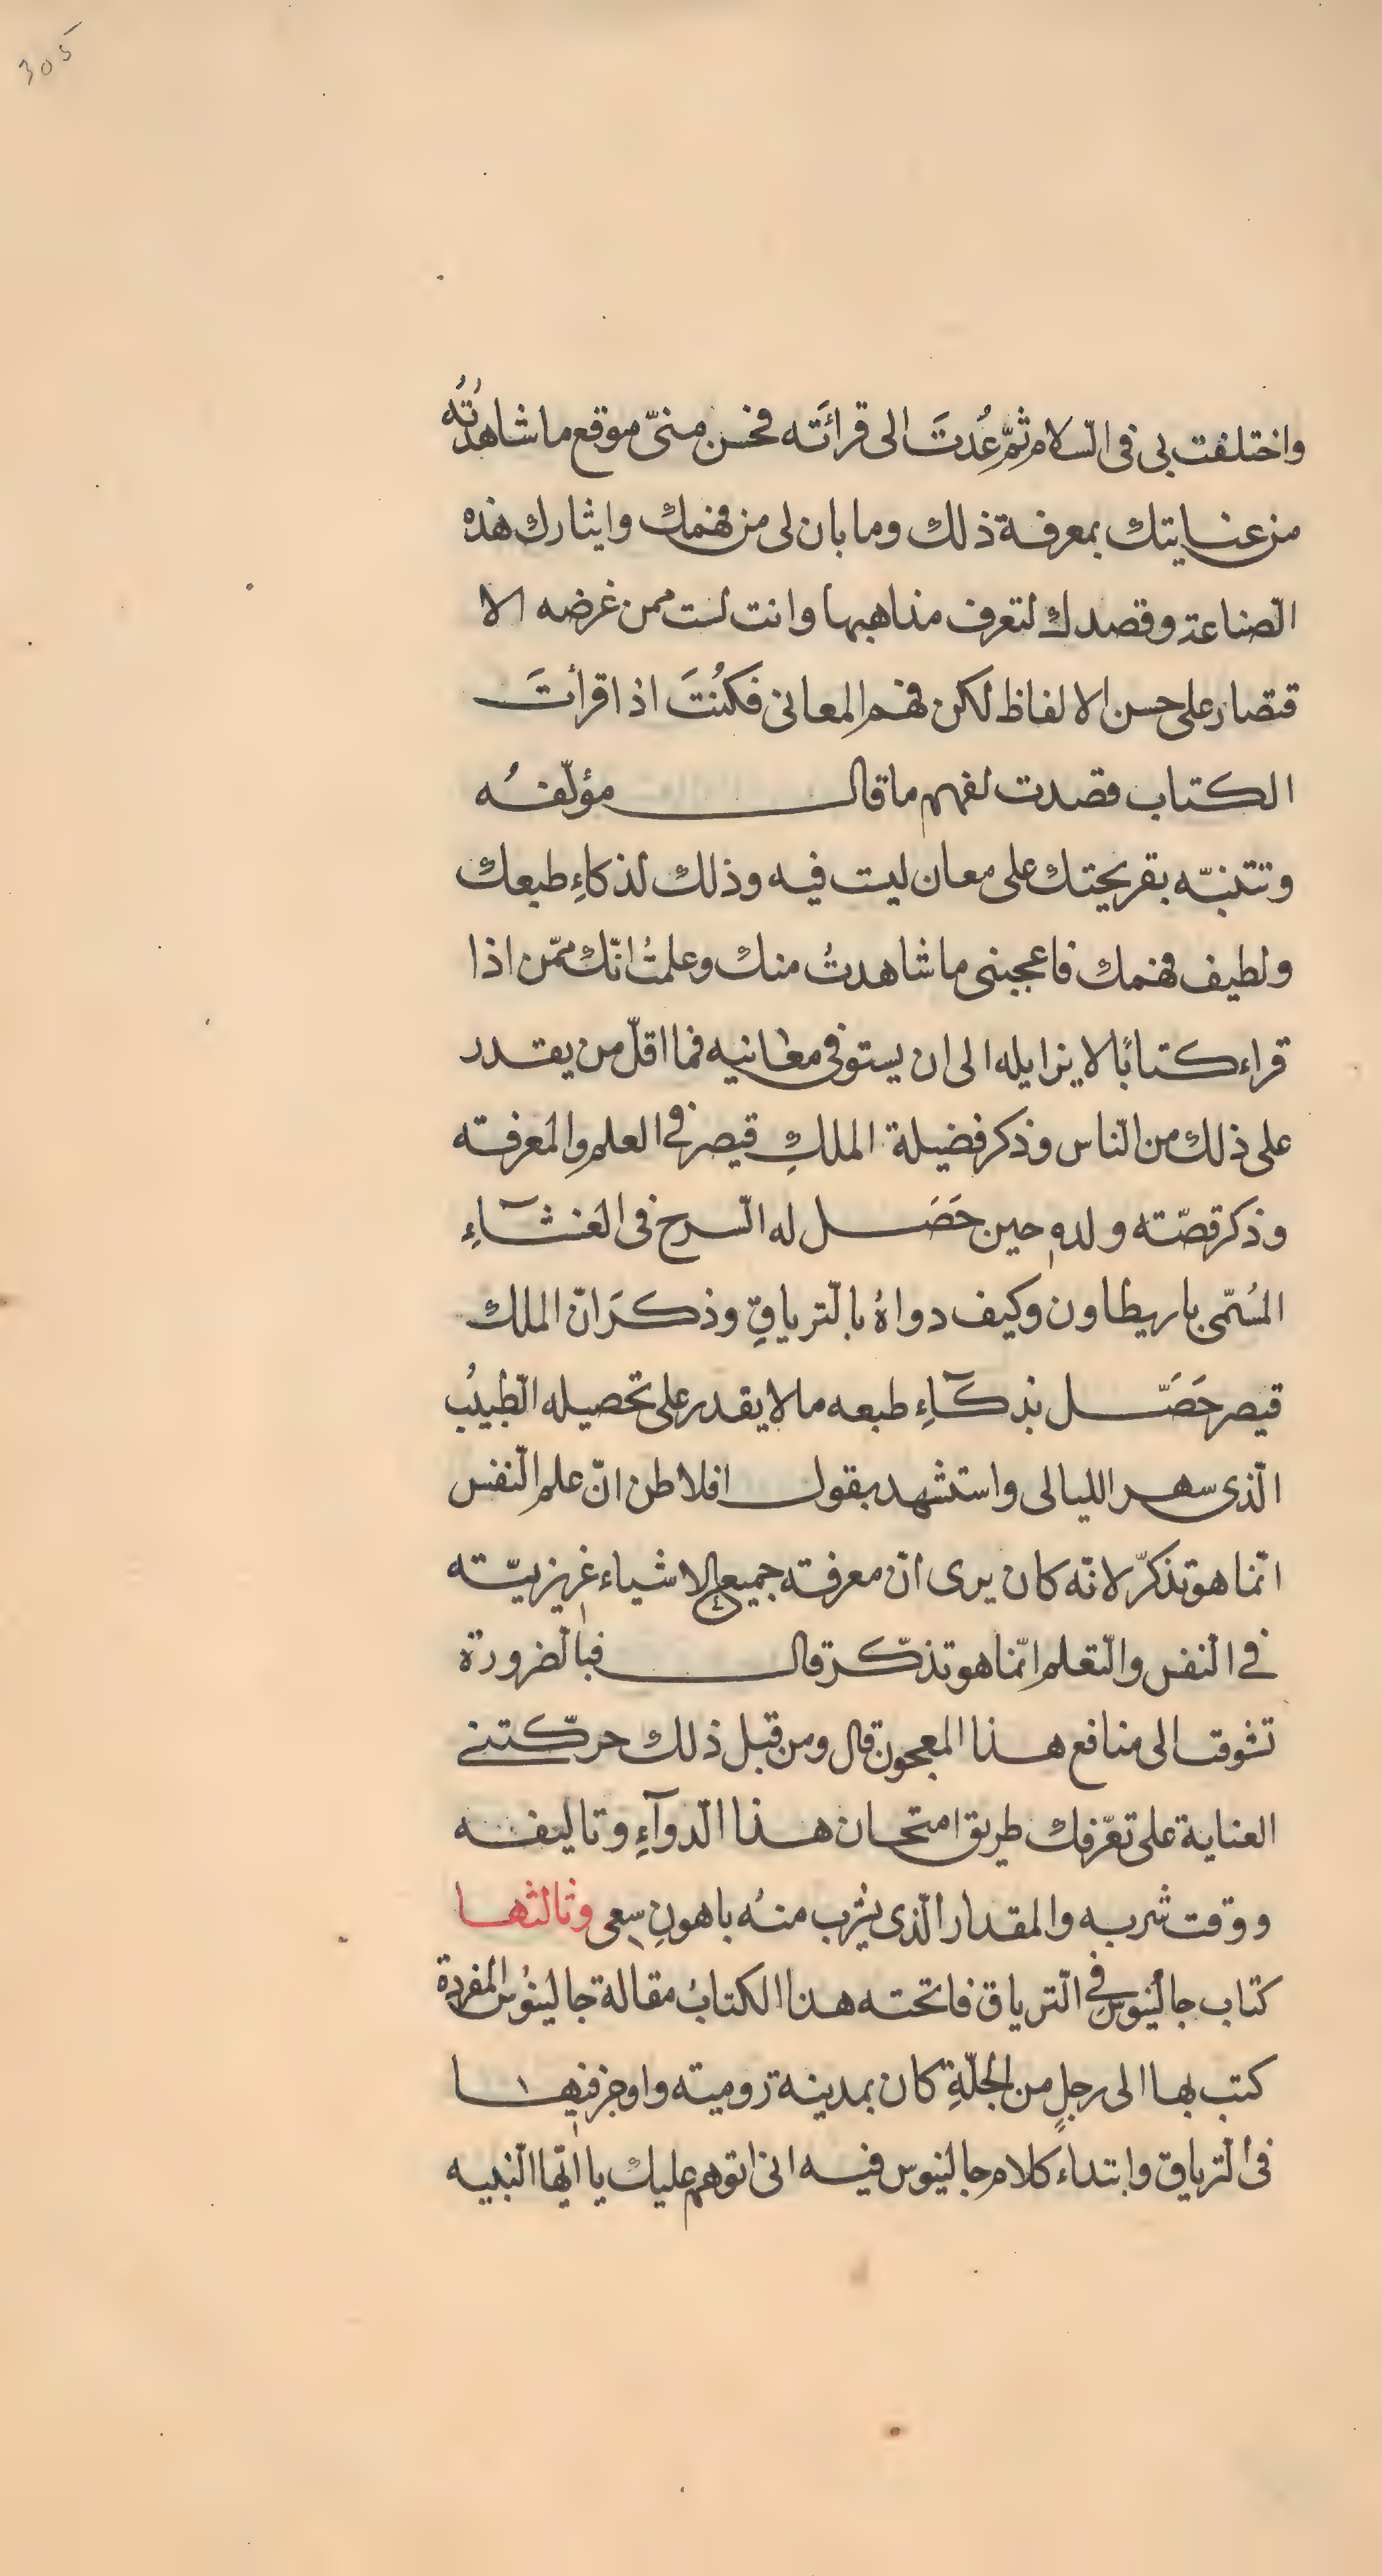 305
واختلفت بى فى السلام ثمّ عُدتَ الى قرائَته فحسن منىّ موقع ما شاهدتُه
من عنايتك بمعرفة ذلك وما بان لى من فهمك وايثارك هذه
الصّناعة وقصدك لتعرف مذاهبها وانت لست ممن غرضه الا
قتصار على حسن الالفاظ لكن فهم المعانى فكُنتَ اذا قرأتَ
الكتاب قصدت لفهم ما قال مؤلّفُه
وتتنبّه بقريحتك على معان ليست فيه وذلك لذكاءِ طبعك
ولطيف فهمك فاعجبنى ما شاهدتُ منك وعلمتُ انّك ممّن اذا
قراء كتابًا لا يزايله الى ان يستوفى معانيه فما اقلّ من يقدر
على ذلك من النّاس وذكر فضيلة الملكِ قيصر فى العلم والمعرفته
وذكر قصّته ولدهِ حين حَصَل له السّرح فى الغشآءِ
المُسّمى باريطاون وكيف دواهُ بالتّرياقِ وذكرَ انّ الملك
قيصر حَصَّل بذكآءِ طبعه ما لا يقدر على تحصيله الطّبيبُ
الّذى سهر الليالى واستشهد بقول افلاطن انّ علم النّفس
انّما هو تذكرّ لانّه كان يرى انّ معرفته جميع الاشياء غريزيّته
فى النّفس والتّعلم انّما هو تذكّرة قال فبالضّرورة
تشوقت الى منافع هذا المعجون قال ومن قبل ذلك حركّتنى
العناية على تعّرفك طريق امتحان هذا الدّوآءِ وتاليفه
ووقت شربه والمقدار الّذى يشرب منهُ باهونِ سعى وثالثها
كتاب جالينوس فى التّرياق فاتحته هذا الكتابُ مقالة جالينُوس المفردة
كتب بها الى رجلٍ من الجلّةِ كان بمدينة روميته واوجز فيها
فى التّرياق وابتداء كلام جالينوس فيه انى اتوهم عليك يا ايّها النّبيه